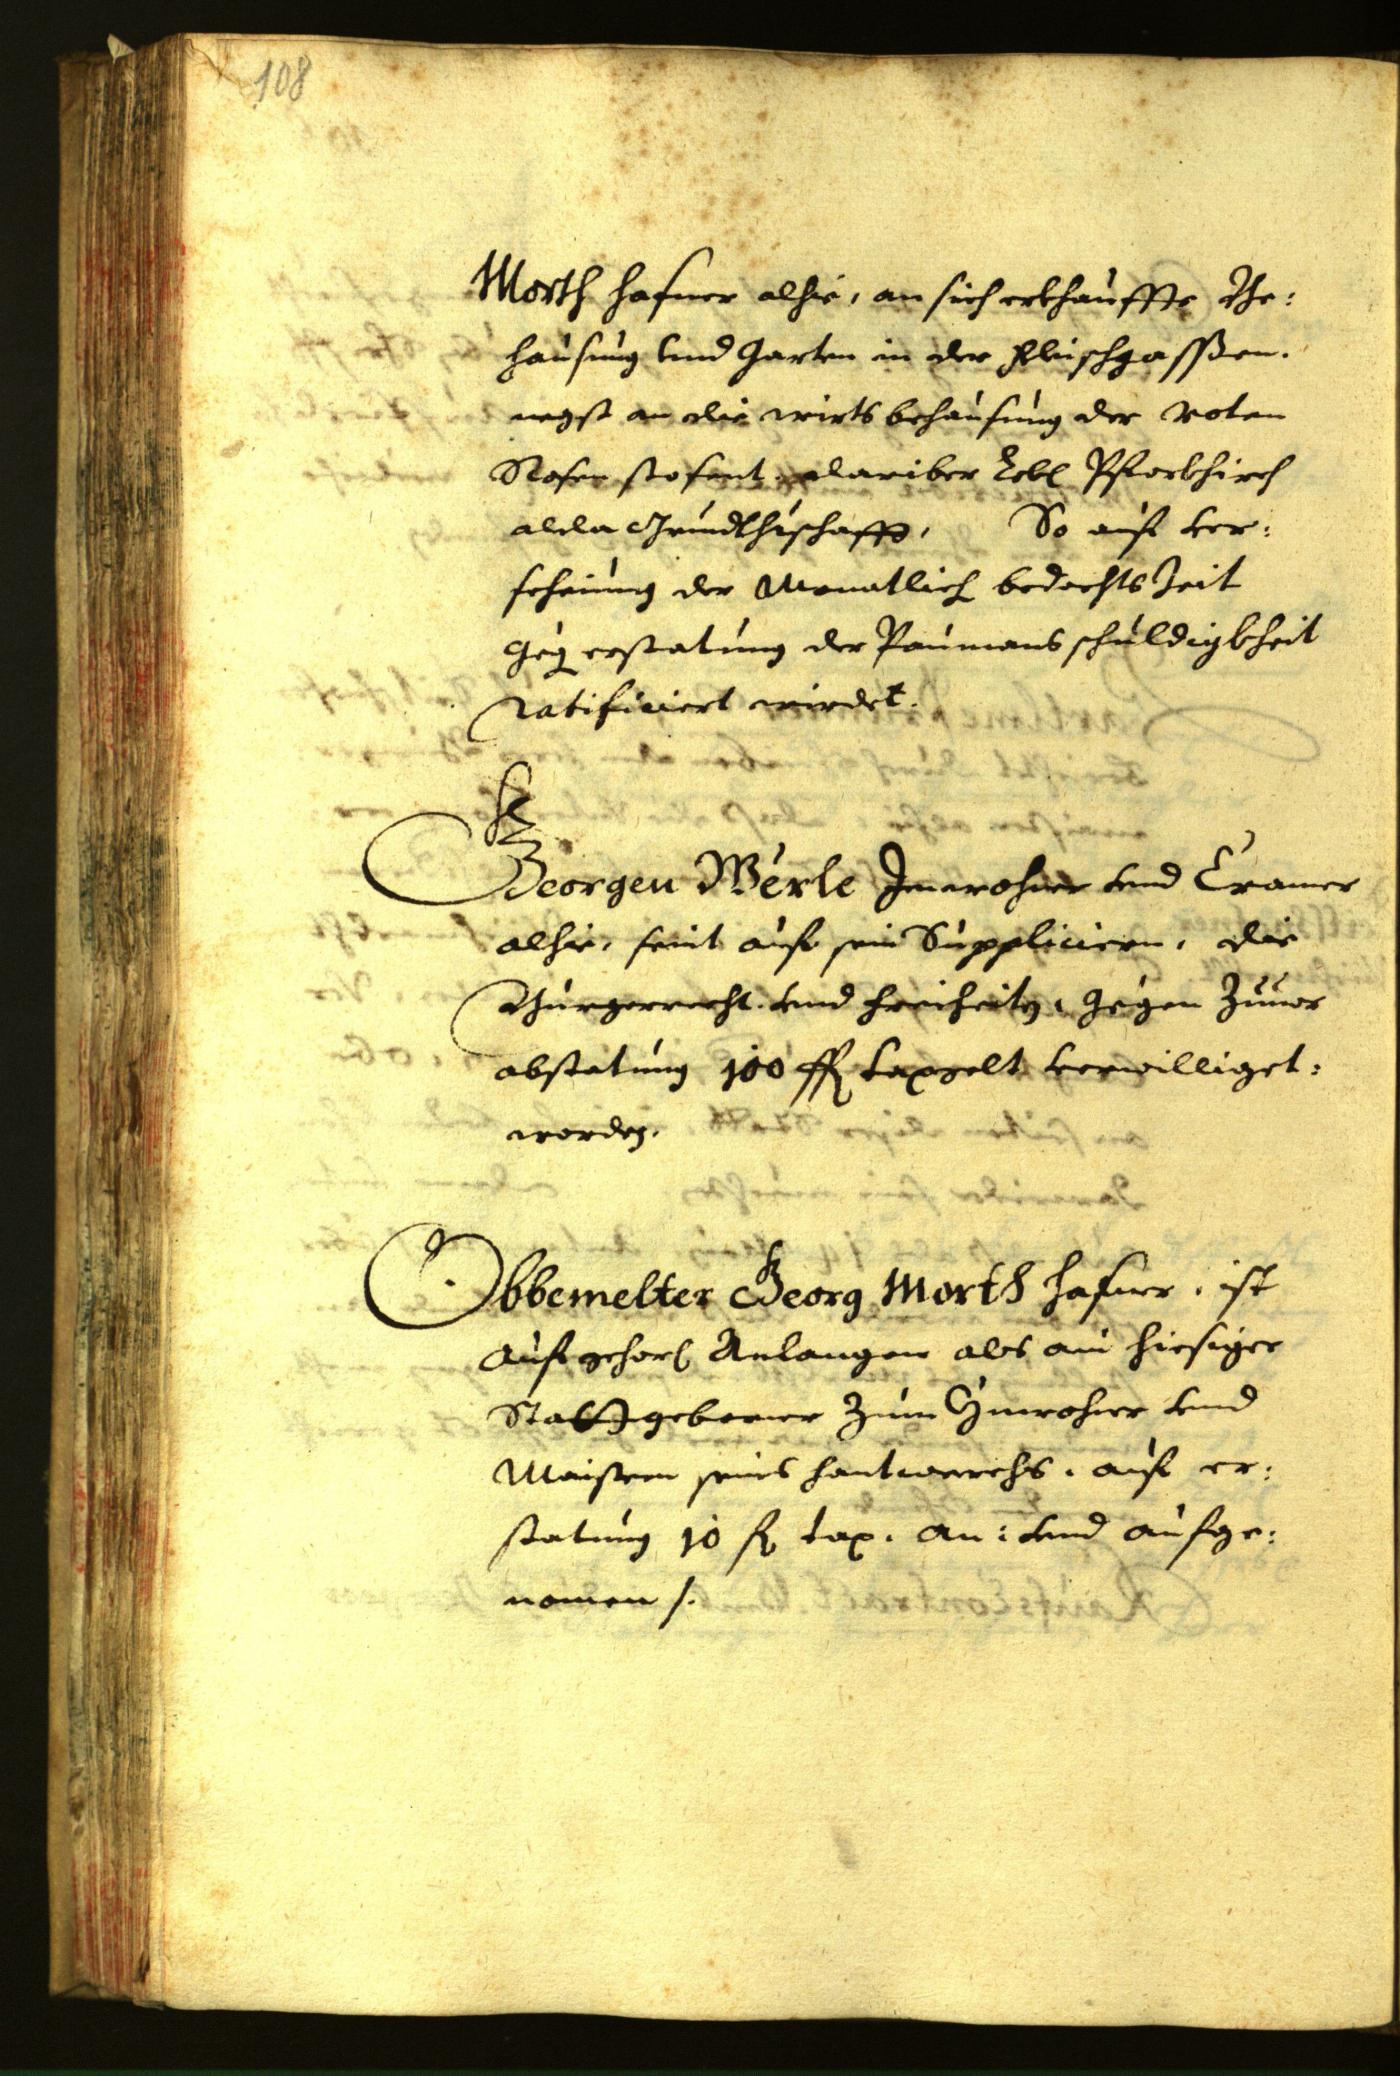 108
Morth Hafner alhie, an sich erkhauffte Be:
hausung vnd Garten in der Fleischgassßen.
negst an die wirts behausung der roten
Rosen stosent. dariber Lobl Pfarkhirch
alda Grundtherschafft, So auf ver:
scheinung der Monatlich bedachts Zeit
geg erstatung der Paumans schuldigkheit
ratificiert wirdet.
Georgen Werle Inwohner vnd Cramer
alhie, seint auf sein Suppliciern, die
Burgerrecht. vnd Freiheitn, gegen Zuuor
abstatung 100 fl taxgelt verwilliget:
worden.
Obbemelter Georg Morth Hafner, ist
auf gehors Anlangen als ain hiesiger
Statt geborner Zum Ynwohner vnd
Maistern seines hantwerchs, auf er:
statung 10 fl tax. an: vnd aufge:
nomen /.